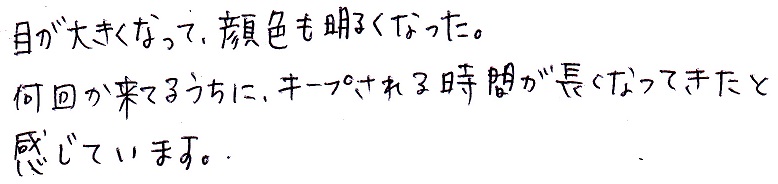 目が大きくなって、顔色も明るくなった。
何回か来てるうちに、キープされる時間が長くなってきたと
感じています。